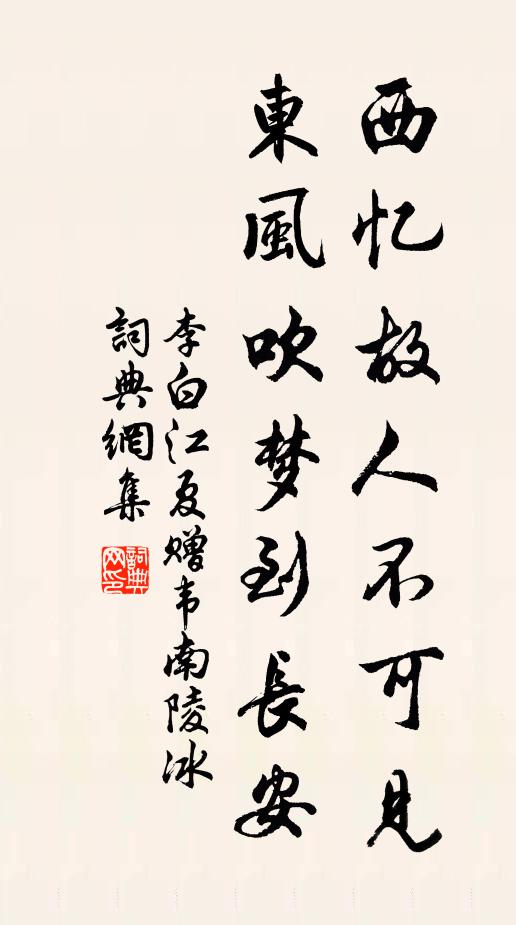 西忆故人不可见
東風吹梦到長安
李白江夏赠韦南陵冰
詞典網集
詞典网印